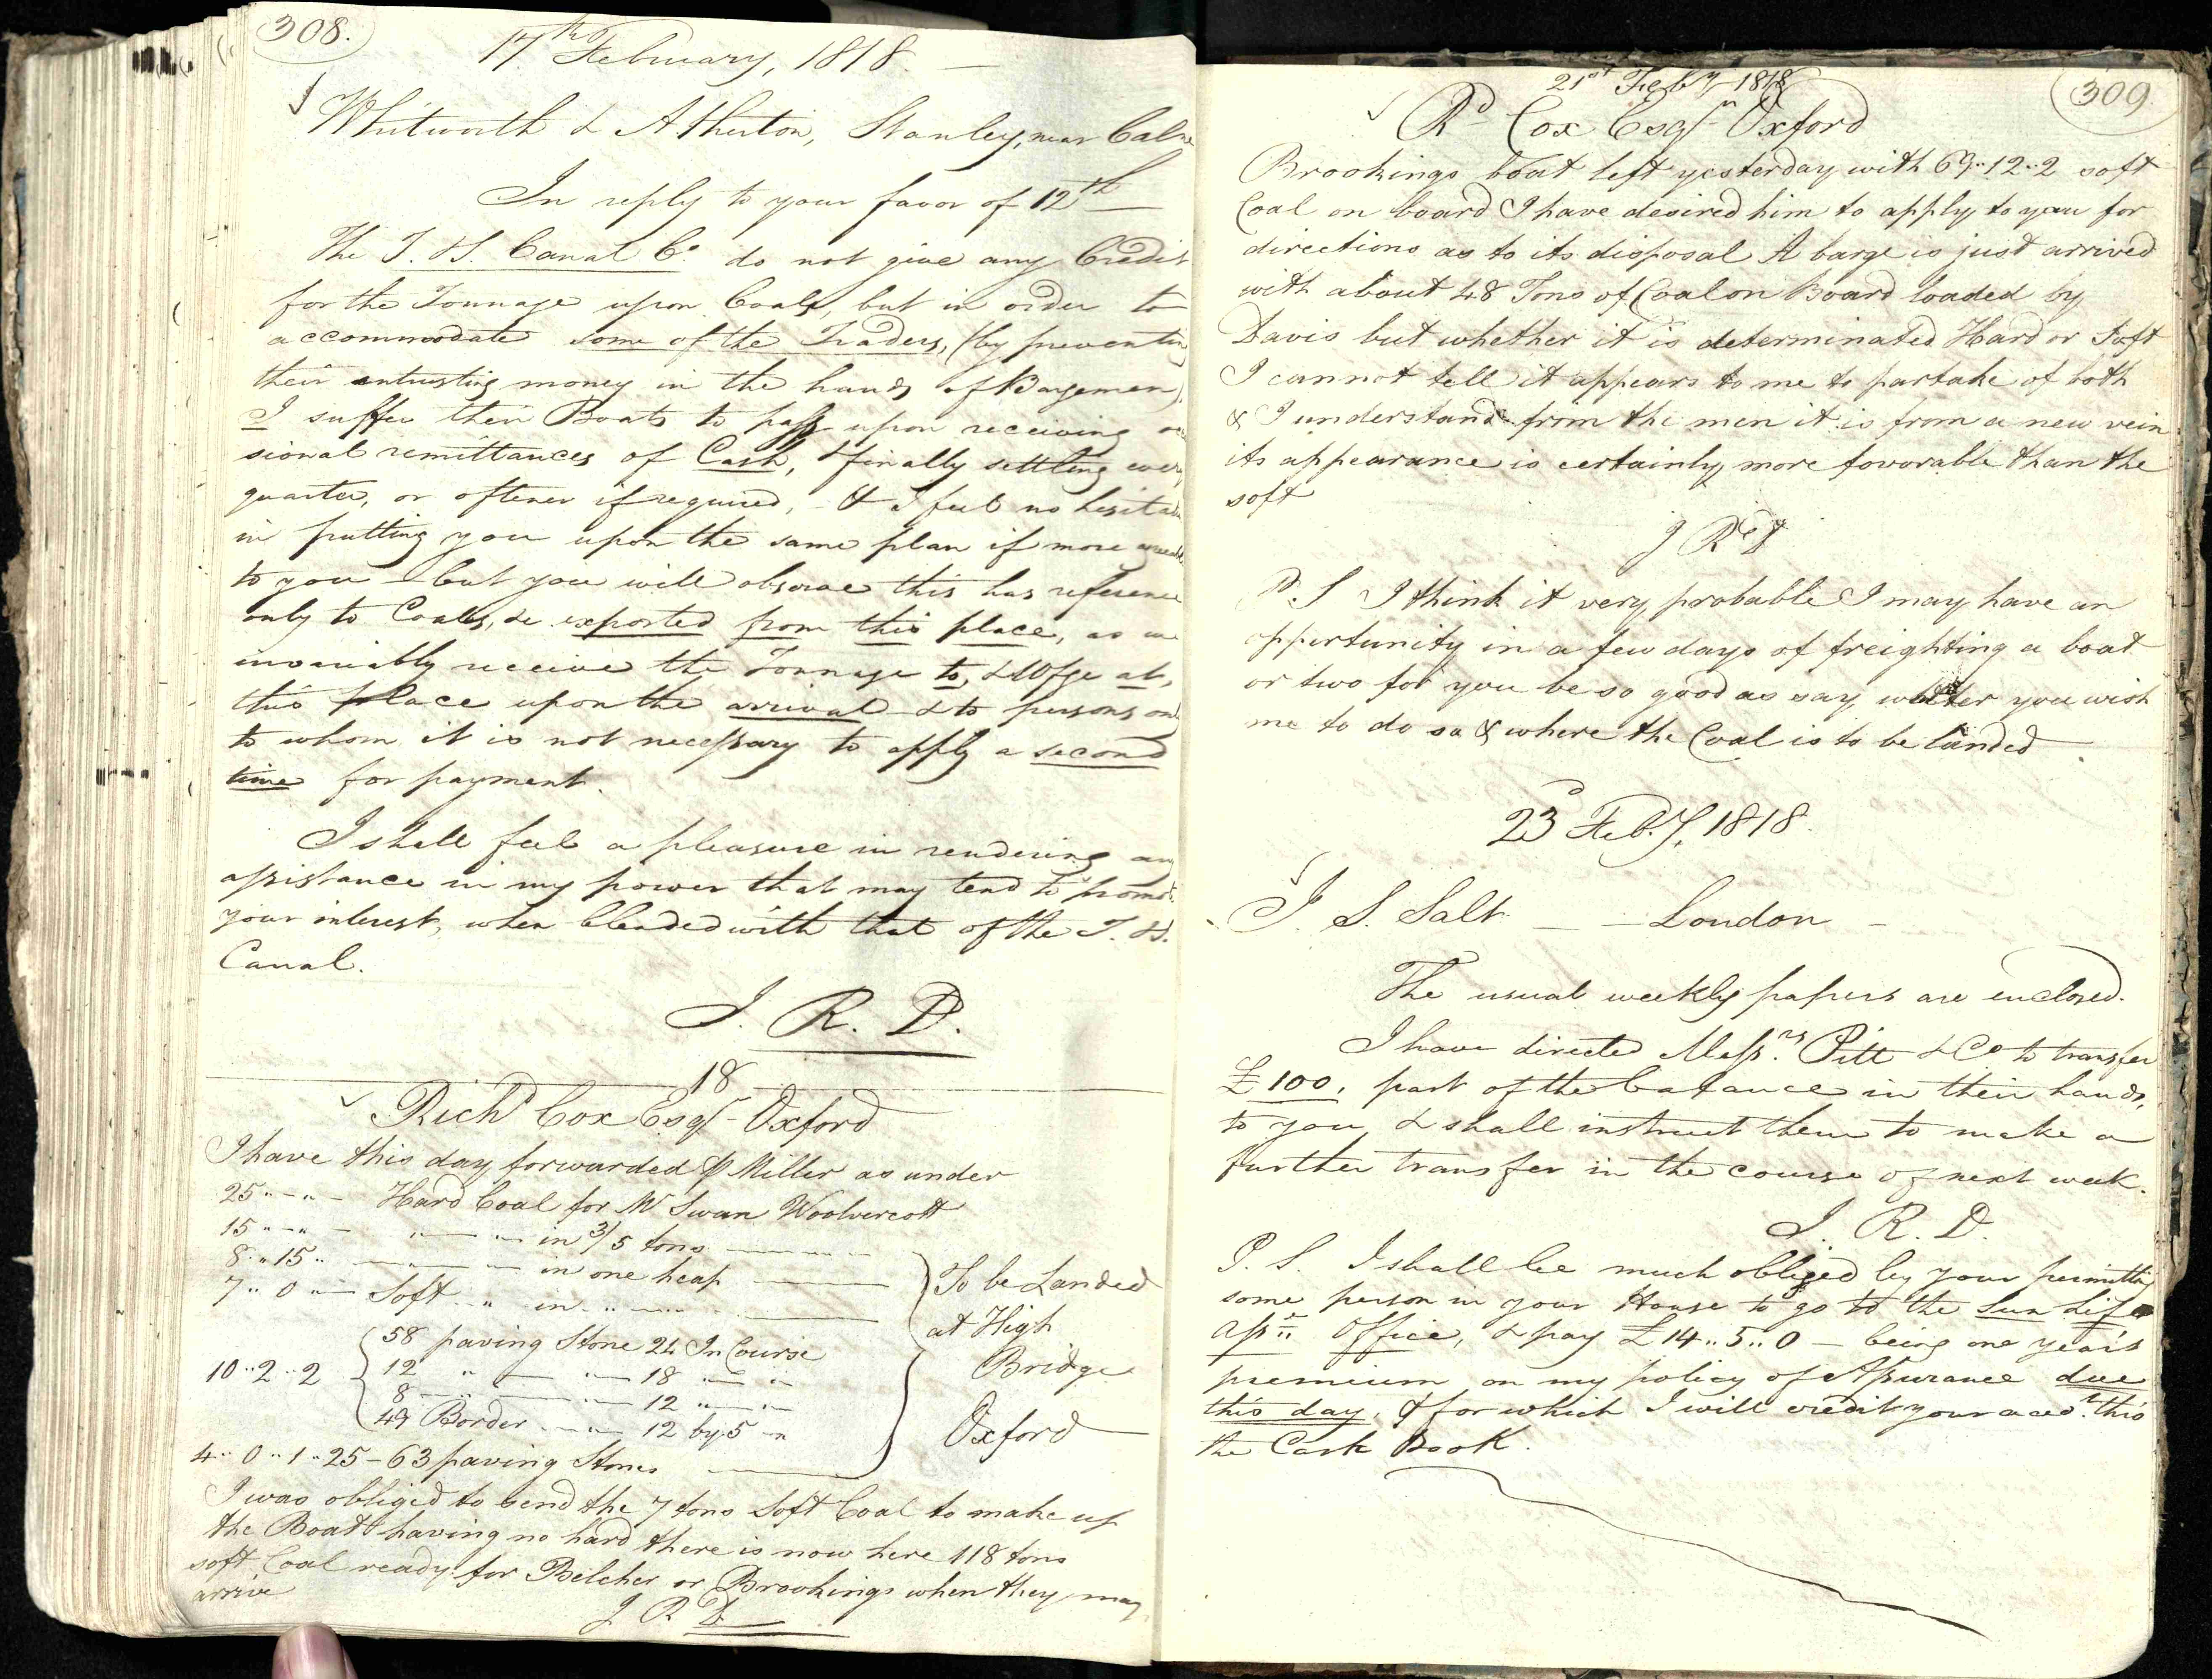 308.
17th February, 1818. —
Whitworth & Atherton, Stanley, near Calne
In reply to your favor of 12th
The T. & S. Canal Co. do not give any Credit
for the Tonnage upon Coals, but in order to
accommodate some of the Traders, (by preventing
their entrusting money in the hands of Bargemen)
I suffer their Boats to pass upon receiving
sional remittances of Cash, & finally settling every
quarter, or oftener if required, & I feel no hesitat
in putting you upon the same plan if more
to you — but you will observe this has reference
only to Coals, &c exported from this place, as we
invariably receive the Tonnage to, & Wfge at,
this place upon the arrival & to persons only
to whom it is not necessary to apply a second
time for payment.
I shall feel a pleasure in rendering any
assistance in my power that may tend to promote
your interest, when blended with that of the T. & S.
Canal.
J. R. D.
18
Richd Cox Esqr Oxford
I have this day forwarded ⅌ Miller as under
25 " - " - Hard Coal for Mr Swan Woolvercott
15 " - " - " — " — in 3/5 tons
8 " 15 " — — in one heap
7 " 0 " — Soft " in " —
To be Landed
at High
Bridge
Oxford
10 " 2 " 2
58 paving Stone 24 In Course
12 " — " — 18 " — "
8 — " — — 12 " — "
49 Border — " — 12 by 5 — "
4 " 0 " 1 " 25 — 63 paving Stones
I was obliged to send the 7 tons Soft Coal to make up
the Boat having no hard there is now here 118 tons
soft Coal ready for Belcher or Brookings when they may
arrive
J R D
309
21st Feby 1818
Rd Cox Esqr Oxford
Brookings boat left yesterday with 69 " 12 " 2 soft
Coal on board I have desired him to apply to you for
directions as to its disposal A barge is just arrived
with about 48 Tons of Coal on Board loaded by
Davis but whether it is determinated Hard or Soft
I cannot tell it appears to me to partake of both
& I understand from the men it is from a new vein
its appearance is certainly more favorable than the
soft
J R D
P.S I think it very probable I may have an
oppertunity in a few days of freighting a boat
or two for you be so good as say wether you wish
me to do so & where the Coal is to be landed
23d Feby. 1818.
J. S. Salt — — London —
The usual weekly papers are enclosed.
I have directed Messrs. Pitt & Co to transfer
£100, part of the balance in their hands,
to you, & shall instruct them to make a
further transfer in the course of next week.
J. R. D.
P. S. I shall be much obliged by your permitting
some person in your House to go to the Sun Life
Asse Office, & pay £14 " 5 " 0 — being one year's
premium on my policy of Assurance due
this day, & for which I will credit your acct. thro
the Cash Book.